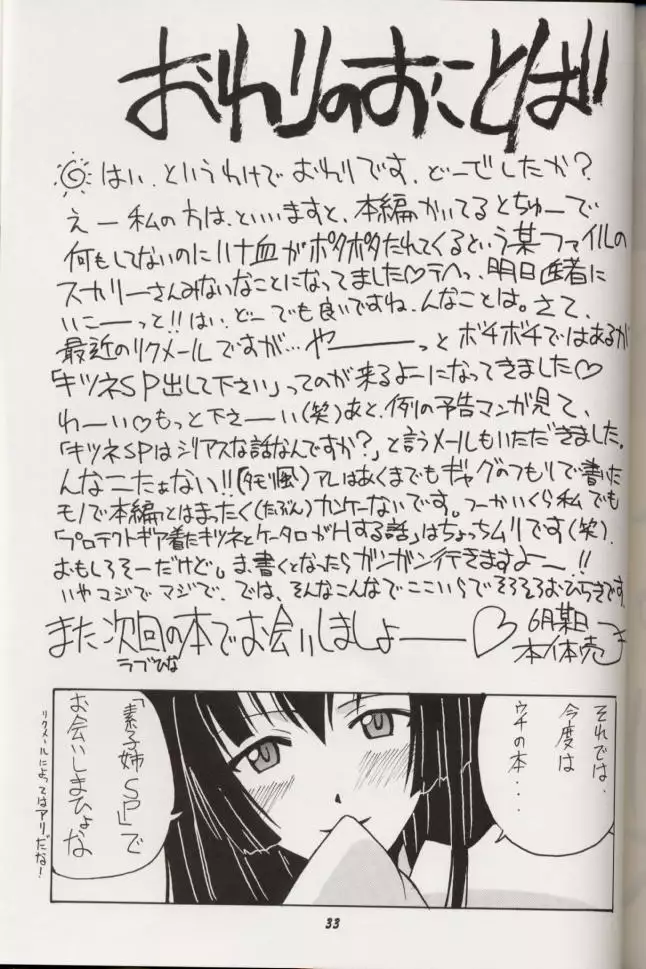 おわりのおことば
はい、というわけでおわりです、どーでしたか?
えー私の方は、といいますと、本編かいてるとちゅーで
何もしてないのにハナ血がポタポタたれてくるという某ファイルの
スカリーさんみないなことになってました♡テヘっ、明日医者に
いこーーっと!!はい、どーでも良いですね、んなことは。さて、
最近のリクメールですが…やーーーっとボチボチではあるが
「キツネSP出して下さい」ってのが来るよーになってきました♡
わーい♡もっと下さーい(笑)あと、例の予告マンガ見て、
「キツネSPはシリアスな話なんですか?」と言うメールもいただきました。
んなこたぁない!!(タモリ風)アレはあくまでもギャグのつもりで書いた
モノで本編とはまったく(たぶん)カンケーないです。つーかいくら私でも
「プロテクトギア着たキツネとケータロがHする話」はちょっちムリです(笑)、
おもしろそーだけど。ま、書くとなったらガンガン行きますよー!!
いやマジでマジで、では、そんなこんなでここいらでそろそろおひらきです、
また次回の本でお会いしましょーーー♡
ラブひな
6月某日
本体売
それでは、
今度は
ウチの本・・・
「素子姉SP」で
お会いしまひょな
リクメールによってはアリだな!
33